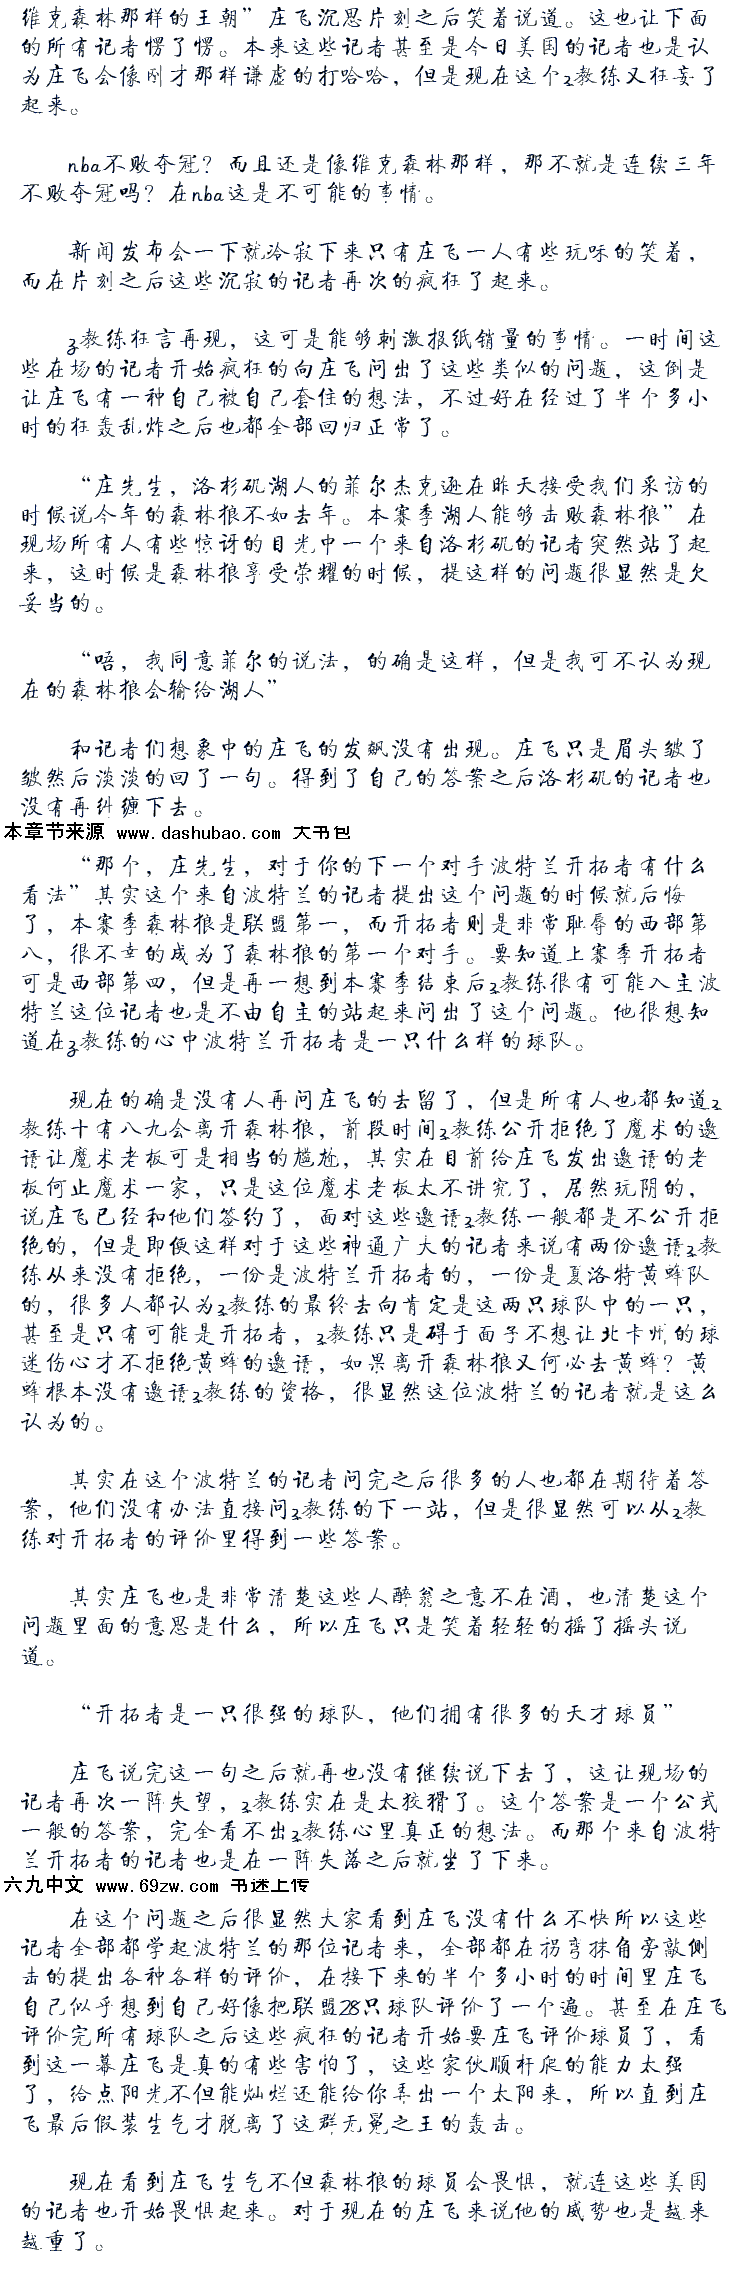 维克森林那样的王朝”庄飞沉思片刻之后笑着说道。这也让下面
的所有记者愣了愣。本来这些记者甚至是今日美国的记者也是认
为庄飞会像刚才那样谦虚的打哈哈，但是现在这个z教练又狂妄了
起来。
nba不败夺冠？而且还是像维克森林那样，那不就是连续三年
不败夺冠吗？在nba这是不可能的事情。
新闻发布会一下就冷寂下来只有庄飞一人有些玩味的笑着，
而在片刻之后这些沉寂的记者再次的疯狂了起来。
z教练狂言再现，这可是能够刺激报纸销量的事情。一时间这
些在场的记者开始疯狂的向庄飞问出了这些类似的问题，这倒是
让庄飞有一种自己被自己套住的想法，不过好在经过了半个多小
时的狂轰乱炸之后也都全部回归正常了。
“庄先生，洛杉矶湖人的菲尔杰克逊在昨天接受我们采访的
时候说今年的森林狼不如去年。本赛季湖人能够击败森林狼”在
现场所有人有些惊讶的目光中一个来自洛杉矶的记者突然站了起
来，这时候是森林狼享受荣耀的时候，提这样的问题很显然是欠
妥当的。
“唔，我同意菲尔的说法，的确是这样，但是我可不认为现
在的森林狼会输给湖人”
和记者们想象中的庄飞的发飙没有出现。庄飞只是眉头皱了
皱然后淡淡的回了一句。得到了自己的答案之后洛杉矶的记者也
没有再纠缠下去。
本章节来源 www.dashubao.com 大书包
“那个，庄先生，对于你的下一个对手波特兰开拓者有什么
看法”其实这个来自波特兰的记者提出这个问题的时候就后悔
了，本赛季森林狼是联盟第一，而开拓者则是非常耻辱的西部第
八，很不幸的成为了森林狼的第一个对手。要知道上赛季开拓者
可是西部第四，但是再一想到本赛季结束后z教练很有可能入主波
特兰这位记者也是不由自主的站起来问出了这个问题。他很想知
道在z教练的心中波特兰开拓者是一只什么样的球队。
现在的确是没有人再问庄飞的去留了，但是所有人也都知道z
教练十有八九会离开森林狼，前段时间z教练公开拒绝了魔术的邀
请让魔术老板可是相当的尴尬，其实在目前给庄飞发出邀请的老
板何止魔术一家，只是这位魔术老板太不讲究了，居然玩阴的，
说庄飞已经和他们签约了，面对这些邀请z教练一般都是不公开拒
绝的，但是即便这样对于这些神通广大的记者来说有两份邀请z教
练从来没有拒绝，一份是波特兰开拓者的，一份是夏洛特黄蜂队
的，很多人都认为z教练的最终去向肯定是这两只球队中的一只，
甚至是只有可能是开拓者，z教练只是碍于面子不想让北卡州的球
迷伤心才不拒绝黄蜂的邀请，如果离开森林狼又何必去黄蜂？黄
蜂根本没有邀请z教练的资格，很显然这位波特兰的记者就是这么
认为的。
其实在这个波特兰的记者问完之后很多的人也都在期待着答
案，他们没有办法直接问z教练的下一站，但是很显然可以从z教
练对开拓者的评价里得到一些答案。
其实庄飞也是非常清楚这些人醉翁之意不在酒，也清楚这个
问题里面的意思是什么，所以庄飞只是笑着轻轻的摇了摇头说
道。
“开拓者是一只很强的球队，他们拥有很多的天才球员”
庄飞说完这一句之后就再也没有继续说下去了，这让现场的
记者再次一阵失望，z教练实在是太狡猾了。这个答案是一个公式
一般的答案，完全看不出z教练心里真正的想法。而那个来自波特
兰开拓者的记者也是在一阵失落之后就坐了下来。
六九中文 www.69zw.com 书迷上传
在这个问题之后很显然大家看到庄飞没有什么不快所以这些
记者全部都学起波特兰的那位记者来，全部都在拐弯抹角旁敲侧
击的提出各种各样的评价，在接下来的半个多小时的时间里庄飞
自己似乎想到自己好像把联盟28只球队评价了一个遍。甚至在庄飞
评价完所有球队之后这些疯狂的记者开始要庄飞评价球员了，看
到这一幕庄飞是真的有些害怕了，这些家伙顺杆爬的能力太强
了，给点阳光不但能灿烂还能给你弄出一个太阳来，所以直到庄
飞最后假装生气才脱离了这群无冕之王的轰击。
现在看到庄飞生气不但森林狼的球员会畏惧，就连这些美国
的记者也开始畏惧起来。对于现在的庄飞来说他的威势也是越来
越重了。